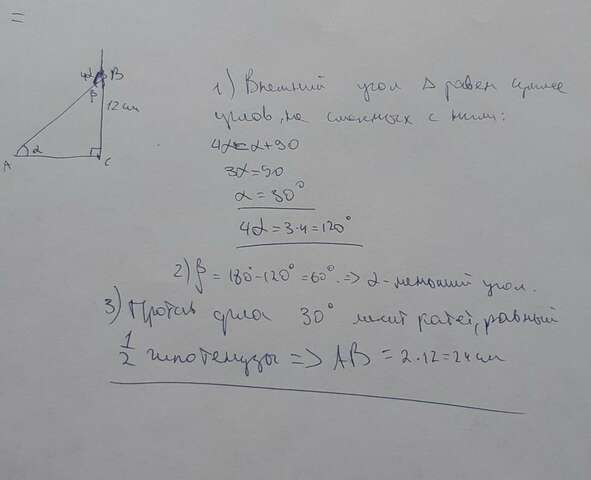 =
4α
B
β
12 см
A
α
C
1) Внешний угол Δ равен сумме
углов, не смежных с ним:
4α = α+90
3α=90
α = 30°
4α = 3·4 = 120°
2) β = 180°-120° = 60° => α - меньший угол.
3) Против угла 30° лежит катет, равный
1/2 гипотенузы => AB = 2·12 = 24 см